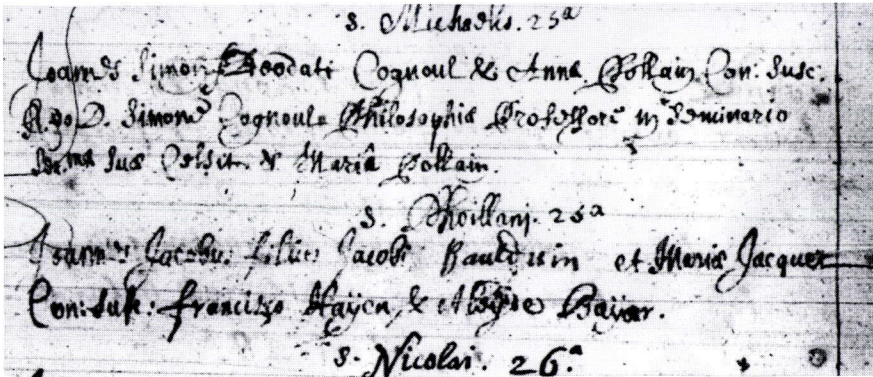 S. Michaelis. 25ª
Joannes Simon Deodati Cognoul & Annæ Collain Con: Susc.
R.do D. Simone Cognoul Philosophiæ Professore in Seminario
Ser.mæ Suæ Celsit. & Maria Collain.
S. Foillani. 25ª
Joannes Jacobus filius Jacobi Bauduin et Mariæ Jacquet
Con: Susc: Francisco Hayen & Bayar.
S. Nicolai. 26.ª